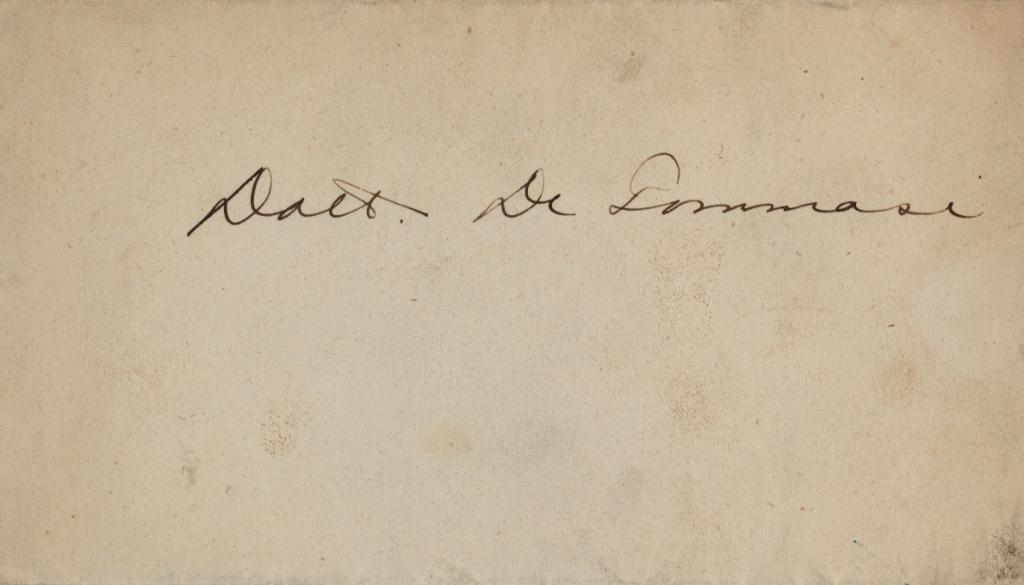 Dott. De Tommasi